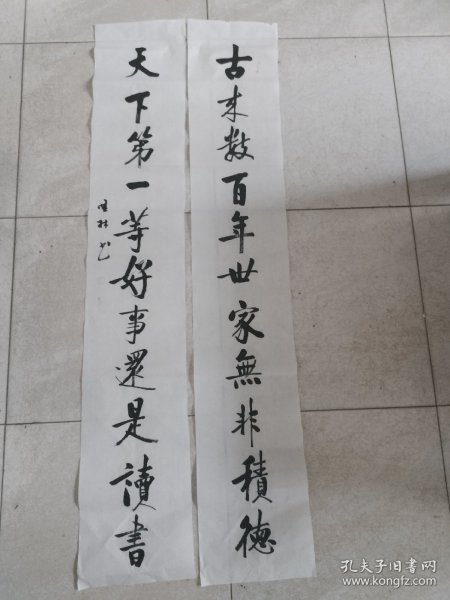 古来数百年世家無非積德
天下第一等好事還是讀書
孔夫子旧书网
www.kongfz.com